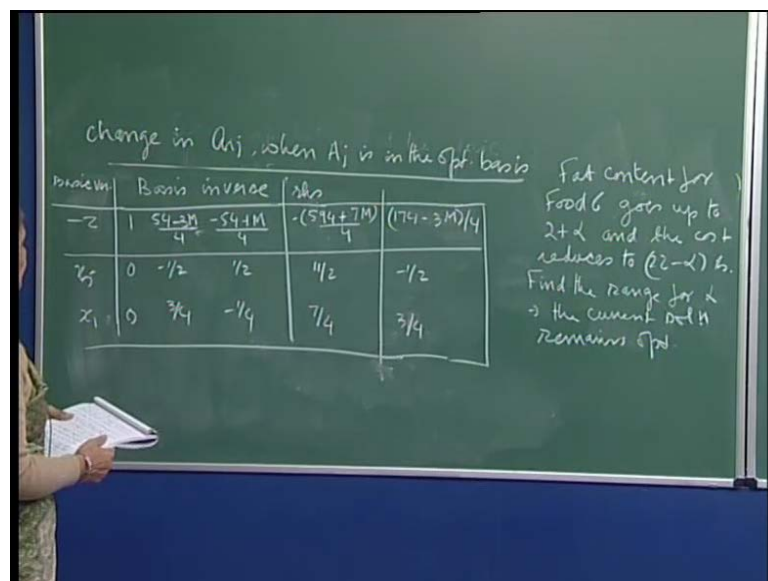 change in arj, when Aj is in the opt. basis
Basic Var Basis inverse rhs
-z 1 54-3M/4 -54+M/4 -(594+7M)/4 (174-3M)/4
x5 0 -1/2 1/2 11/2 -1/2
x1 0 3/4 -1/4 7/4 3/4
Fat content for
Food 6 goes up to
2+α and the cost
reduces to (22-α) Rs.
Find the range for α
∋ the current soln
remains opt.